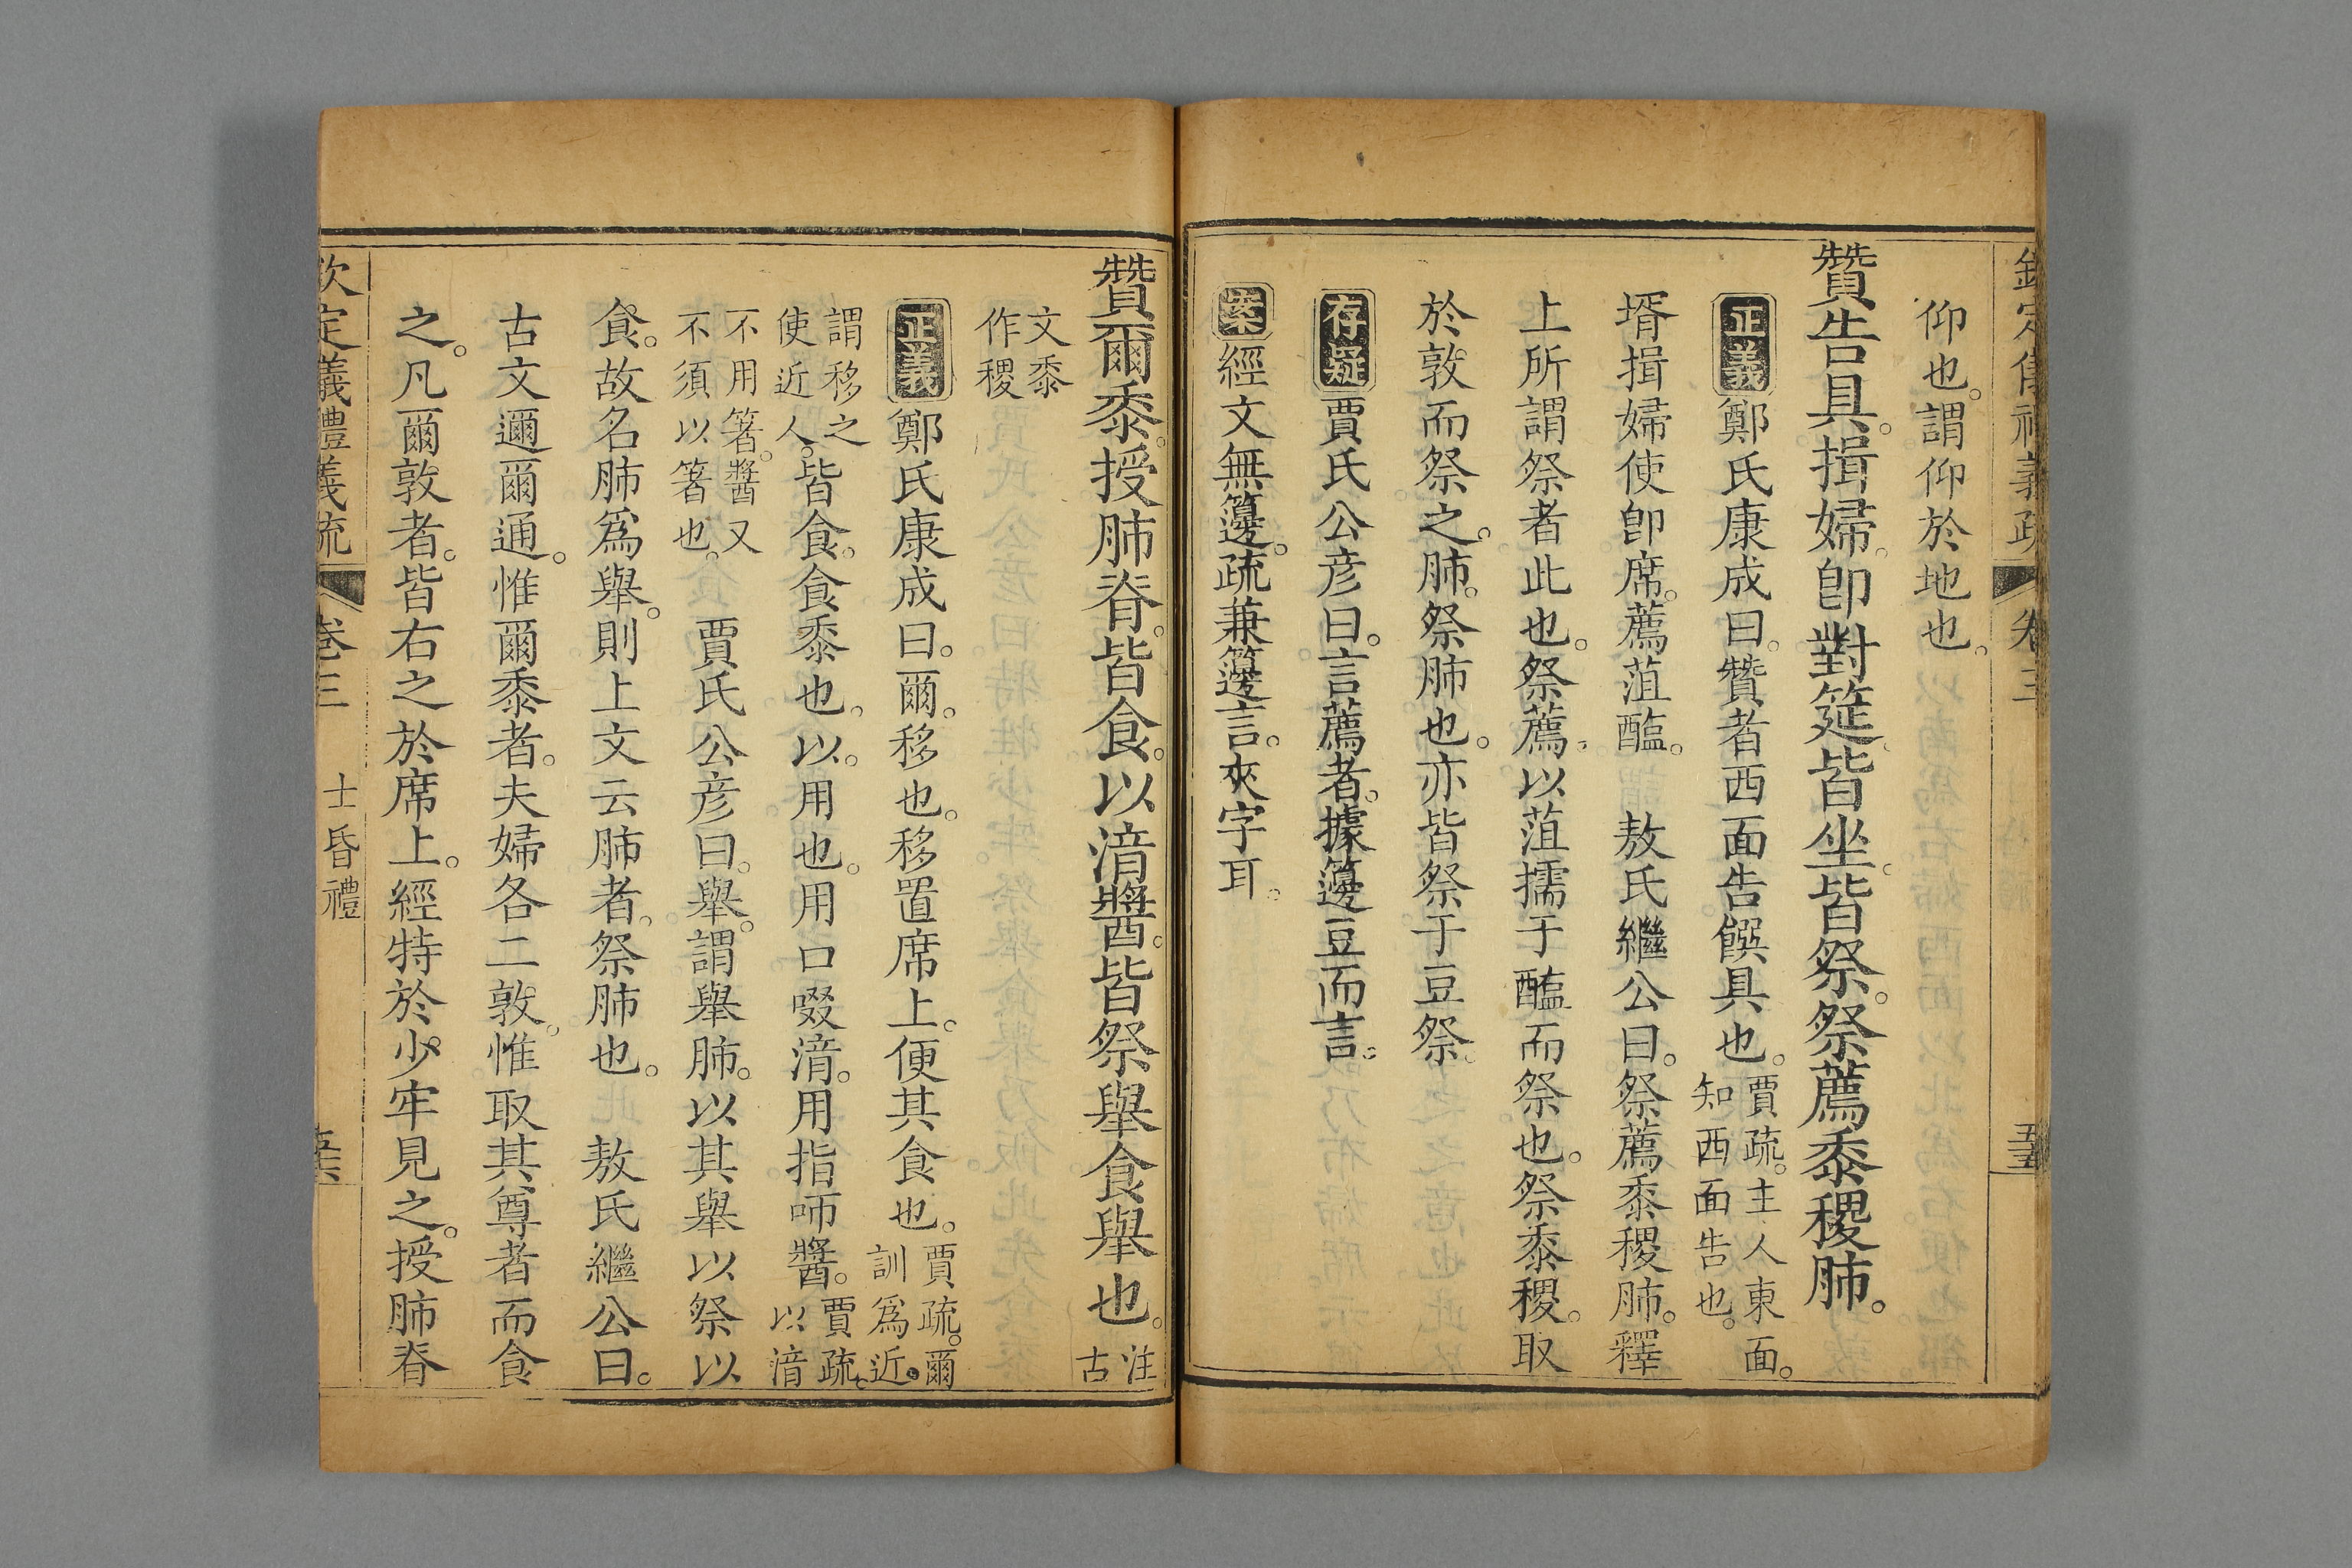 欽定儀禮義疏 卷三 五十五
仰也。謂仰於地也。
贊告具。揖婦。卽對筵。皆坐。皆祭。祭薦黍稷肺。
正義 鄭氏康成曰。贊者西面告饌具也。賈疏。主人東面。
知西面告也。
壻揖婦使卽席。薦菹醢。 敖氏繼公曰。祭薦黍稷肺。釋
上所謂祭者此也。祭薦。以菹擩于醢而祭也。祭黍稷。取
於敦而祭之。肺。祭肺也。亦皆祭于豆祭。
存疑 賈氏公彦曰。言薦者。據籩豆而言。
案 經文無籩。疏兼籩言。夾字耳。
贊爾黍。授肺脊。皆食。以湇醬。皆祭舉食舉也。注
古
文黍
作稷
正義 鄭氏康成曰。爾。移也。移置席上。便其食也。賈疏。爾
訓爲近。
謂移之
使近人。皆食。食黍也。以。用也。用口啜湇。用指㕮醬。賈疏。
以湇
不用箸。醬又
不須以箸也。 賈氏公彦曰。舉。謂舉肺。以其舉以祭以
食。故名肺爲舉。則上文云肺者。祭肺也。 敖氏繼公曰。
古文邇爾通。惟爾黍者。夫婦各二敦。惟取其尊者而食
之。凡爾敦者。皆右之於席上。經特於少牢見之。授肺脊
欽定義禮義疏 卷三 士昏禮 五十六